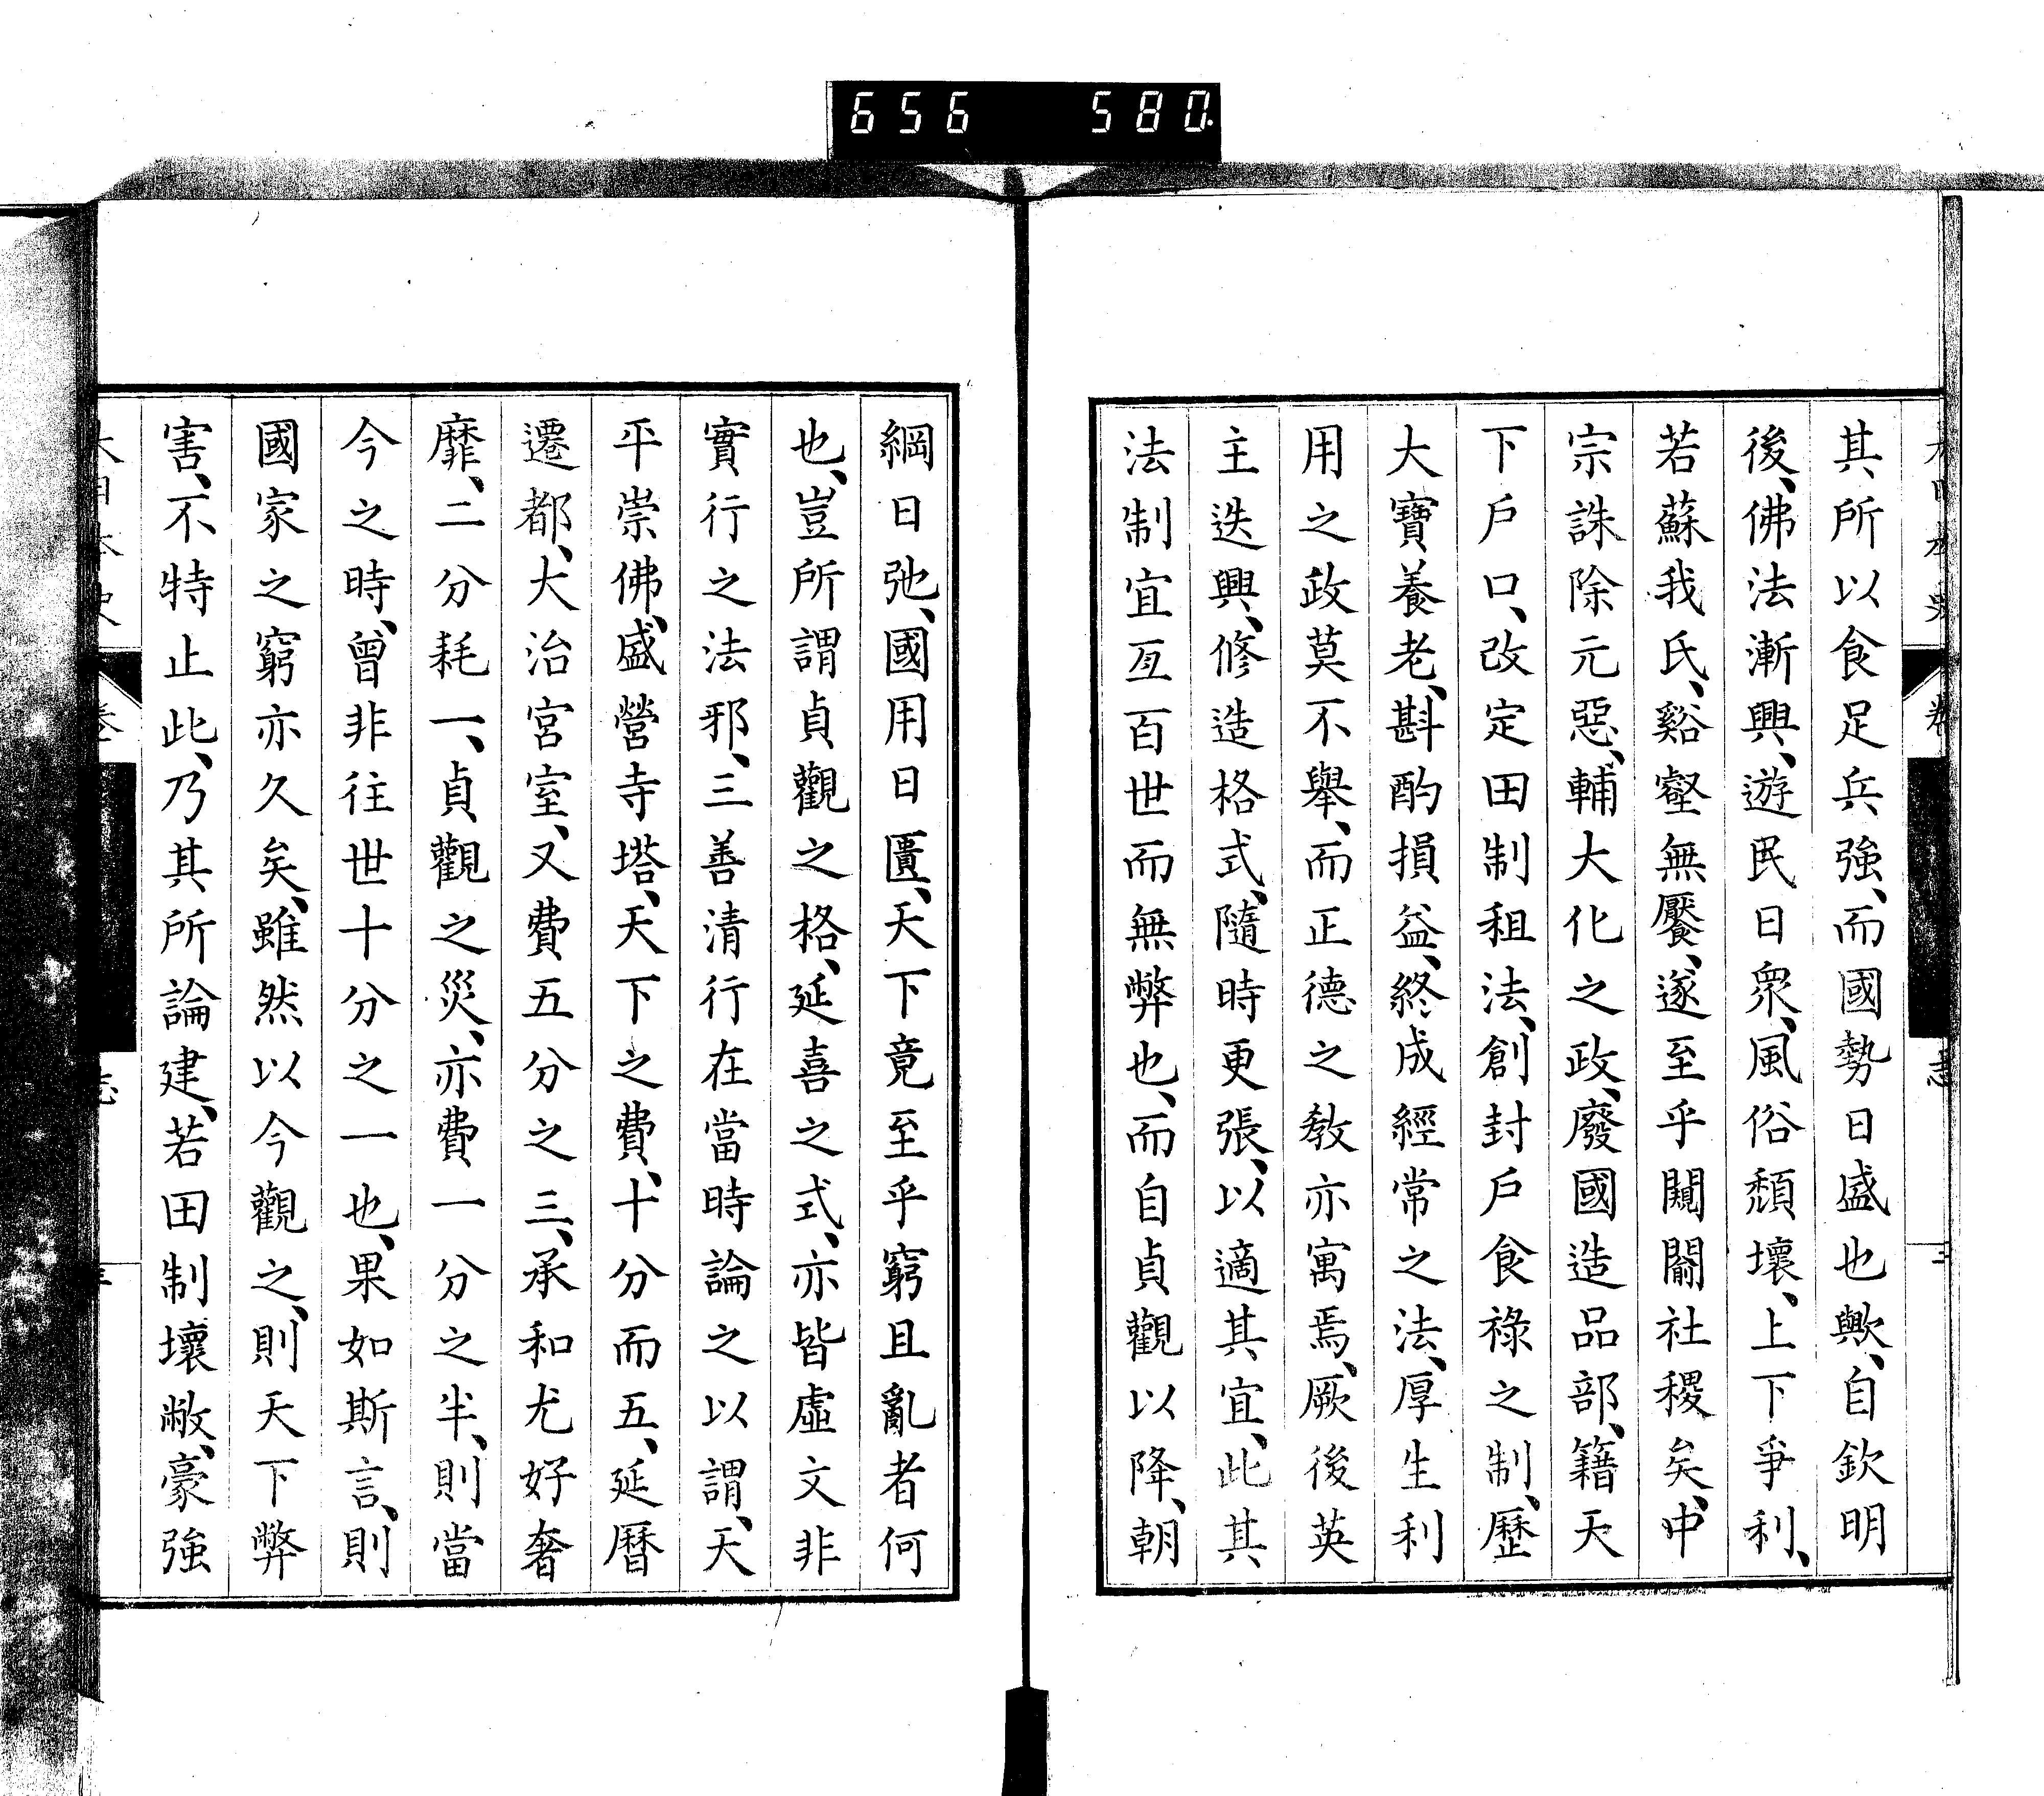 656 580.
其所以食足兵強、而國勢日盛也歟、自欽明
後、佛法漸興、遊民日衆、風俗頽壞、上下爭利、
若蘇我氏、谿壑無饜、遂至乎闚闔社稷矣、中
宗誅除元惡、輔大化之政、廢國造品部、籍天
下戶口、改定田制租法、創封戶食祿之制、歷
大寶養老、斟酌損益、終成經常之法、厚生利
用之政莫不舉、而正德之教亦寓焉、厥後英
主迭興、修造格式、隨時更張、以適其宜、此其
法制宜亙百世而無弊也、而自貞觀以降、朝
綱日弛、國用日匱、天下竟至乎窮且亂者何
也、豈所謂貞觀之格、延喜之式、亦皆虛文非
實行之法邪、三善清行在當時論之以謂、天
平崇佛、盛營寺塔、天下之費、十分而五、延曆
遷都、大治宮室、又費五分之三、承和尤好奢
靡、二分耗一、貞觀之災、亦費一分之半、則當
今之時、曾非往世十分之一也、果如斯言、則
國家之窮亦久矣、雖然以今觀之、則天下弊
害、不特止此、乃其所論建、若田制壞敝、豪強